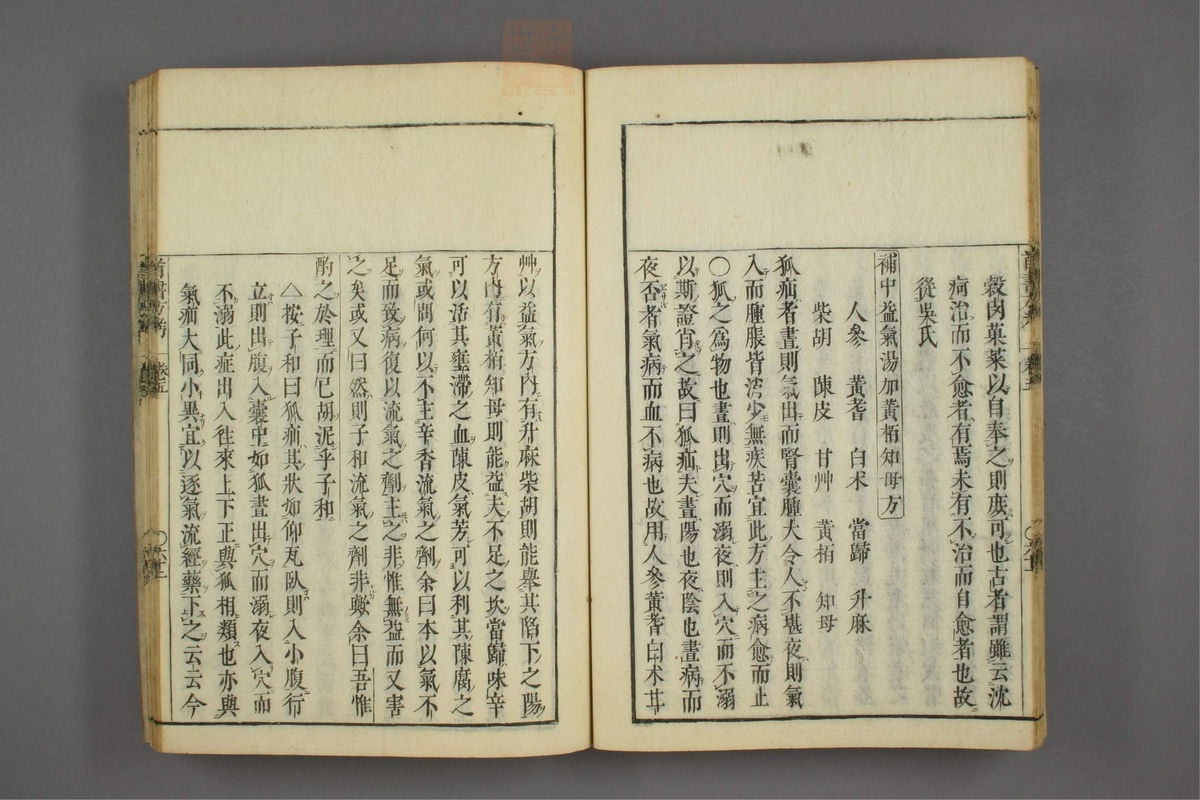 穀肉菓菜以自奉之則庶可也古者謂雖云沈
痾治而不愈者有焉未有不治而自愈者也故
從吳氏
補中益氣湯加黃栢知母方
人參　黃耆　白术　當歸　升麻
柴胡　陳皮　甘艸　黃栢　知母
狐疝者晝則氣出而腎囊腫大令人不堪夜則氣
入而腫脹皆消少無疾苦宜此方主之病愈而止
〇狐之爲物也晝則出穴而溺夜則入穴而不溺
以斯證肖之故曰狐疝夫晝陽也夜陰也晝病而
夜否者氣病而血不病也故用人參黃耆白术甘
艸以益氣方內有升麻柴胡則能舉其陷下之陽
方內有黃栢知母則能益夫不足之坎當歸味辛
可以活其壅滯之血陳皮氣芳可以利其陳腐之
氣或問何以不主辛香流氣之劑余曰本以氣不
足而致病復以流氣之劑主之非惟無益而又害
之矣或又曰然則子和流氣之劑非歟余曰吾惟
酌之於理而已胡泥乎子和
△按子和曰狐疝其狀如仰瓦臥則入小腹行
立則出腹入囊中如狐晝出穴而溺夜入穴而
不溺此症出入往來上下正與狐相類也亦與
氣疝大同小異宜以逐氣流經藥下之云云今